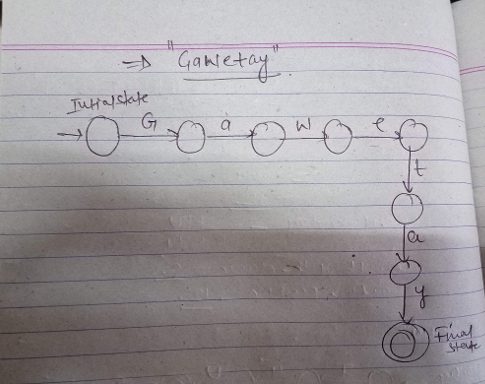 ⇒ "Gawetay"
Initial state
G a w e
t
a
y
Final
state